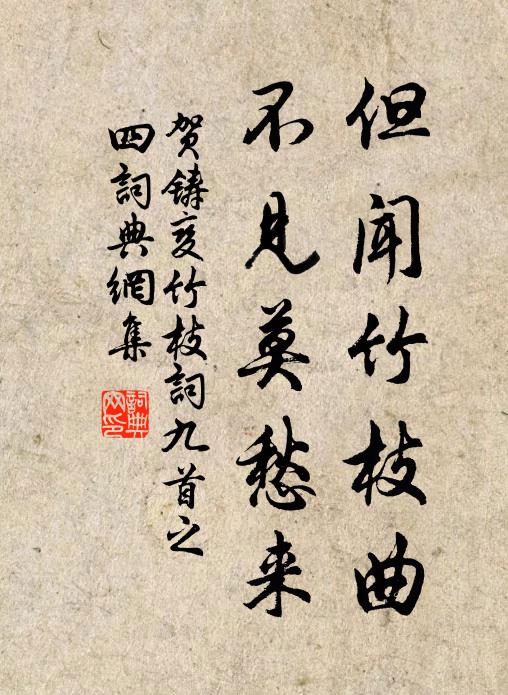 但闻竹枝曲
不見莫愁来
贺鑄变竹枝詞九首之
四詞典網集
詞典
网印